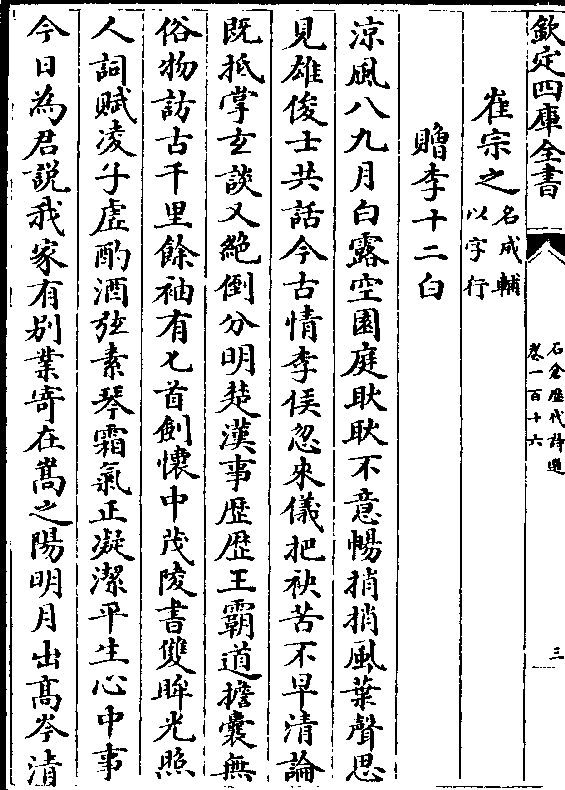 欽定四庫全書
石倉歴代詩選
卷一百十六
三
崔宗之
名成輔
以字行
贈李十二白
涼風八九月白露空園庭耿耿不意暢捎捎風葉聲思
見雄俊士共話今古情李侯忽來儀把袂苦不早清論
既抵掌玄談又絶倒分明楚漢事歴歴王霸道擔囊無
俗物訪古千里餘袖有匕首劍懷中茂陵書雙眸光照
人詞賦凌子虛酌酒弦素琴霜氣正凝潔平生心中事
今日為君説我家有别業寄在嵩之陽明月出髙岑清